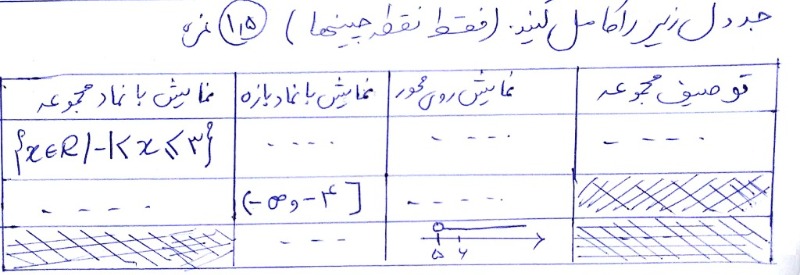 جدول زیر را کامل کنید. (فقط نقطه‌چینها) ۱,۵ نمره
توصیف مجموعه نمایش روی محور نمایش با نماد بازه نمایش با نماد مجموعه
---- ---- ---- {x∈R/-1<x≤۳}
---- (-∞و-۴] ----
--- ۵ ۶